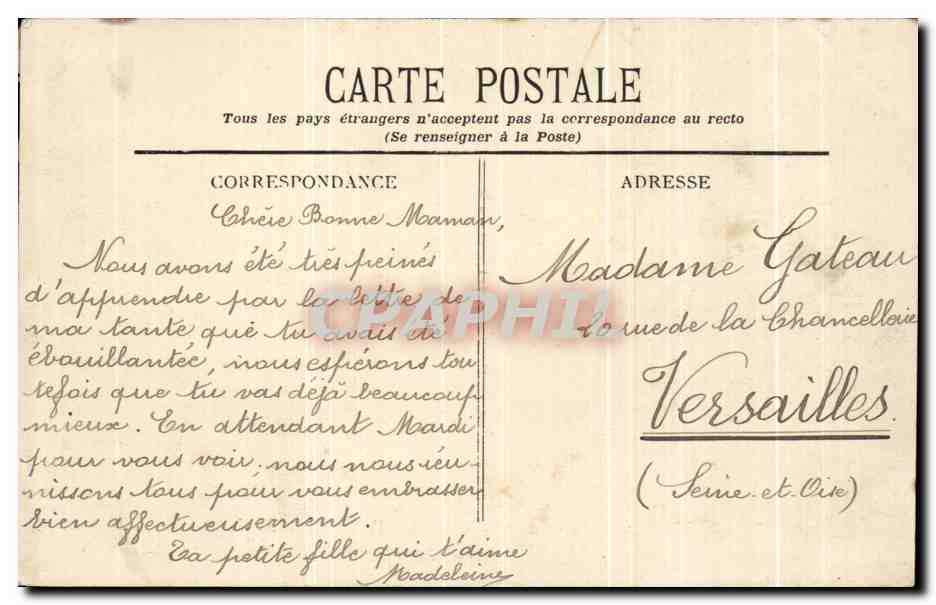 CARTE POSTALE
Tous les pays étrangers n'acceptent pas la correspondance au recto
(Se renseigner à la Poste)
CORRESPONDANCE
Chère Bonne Maman,
Nous avons été très peinés
d'apprendre par la lettre de
ma tante que tu avais été
ébouillantée, nous espérons tou
tefois que tu vas déjà beaucoup
mieux. En attendant Mardi
pour vous voir, nous nous réu-
nissons tous pour vous embrasser
bien affectueusement.
Ta petite fille qui t'aime
Madeleine
ADRESSE
Madame Gateau
20 rue de la Chancellerie
Versailles.
(Seine-et-Oise)
CPAPHIL